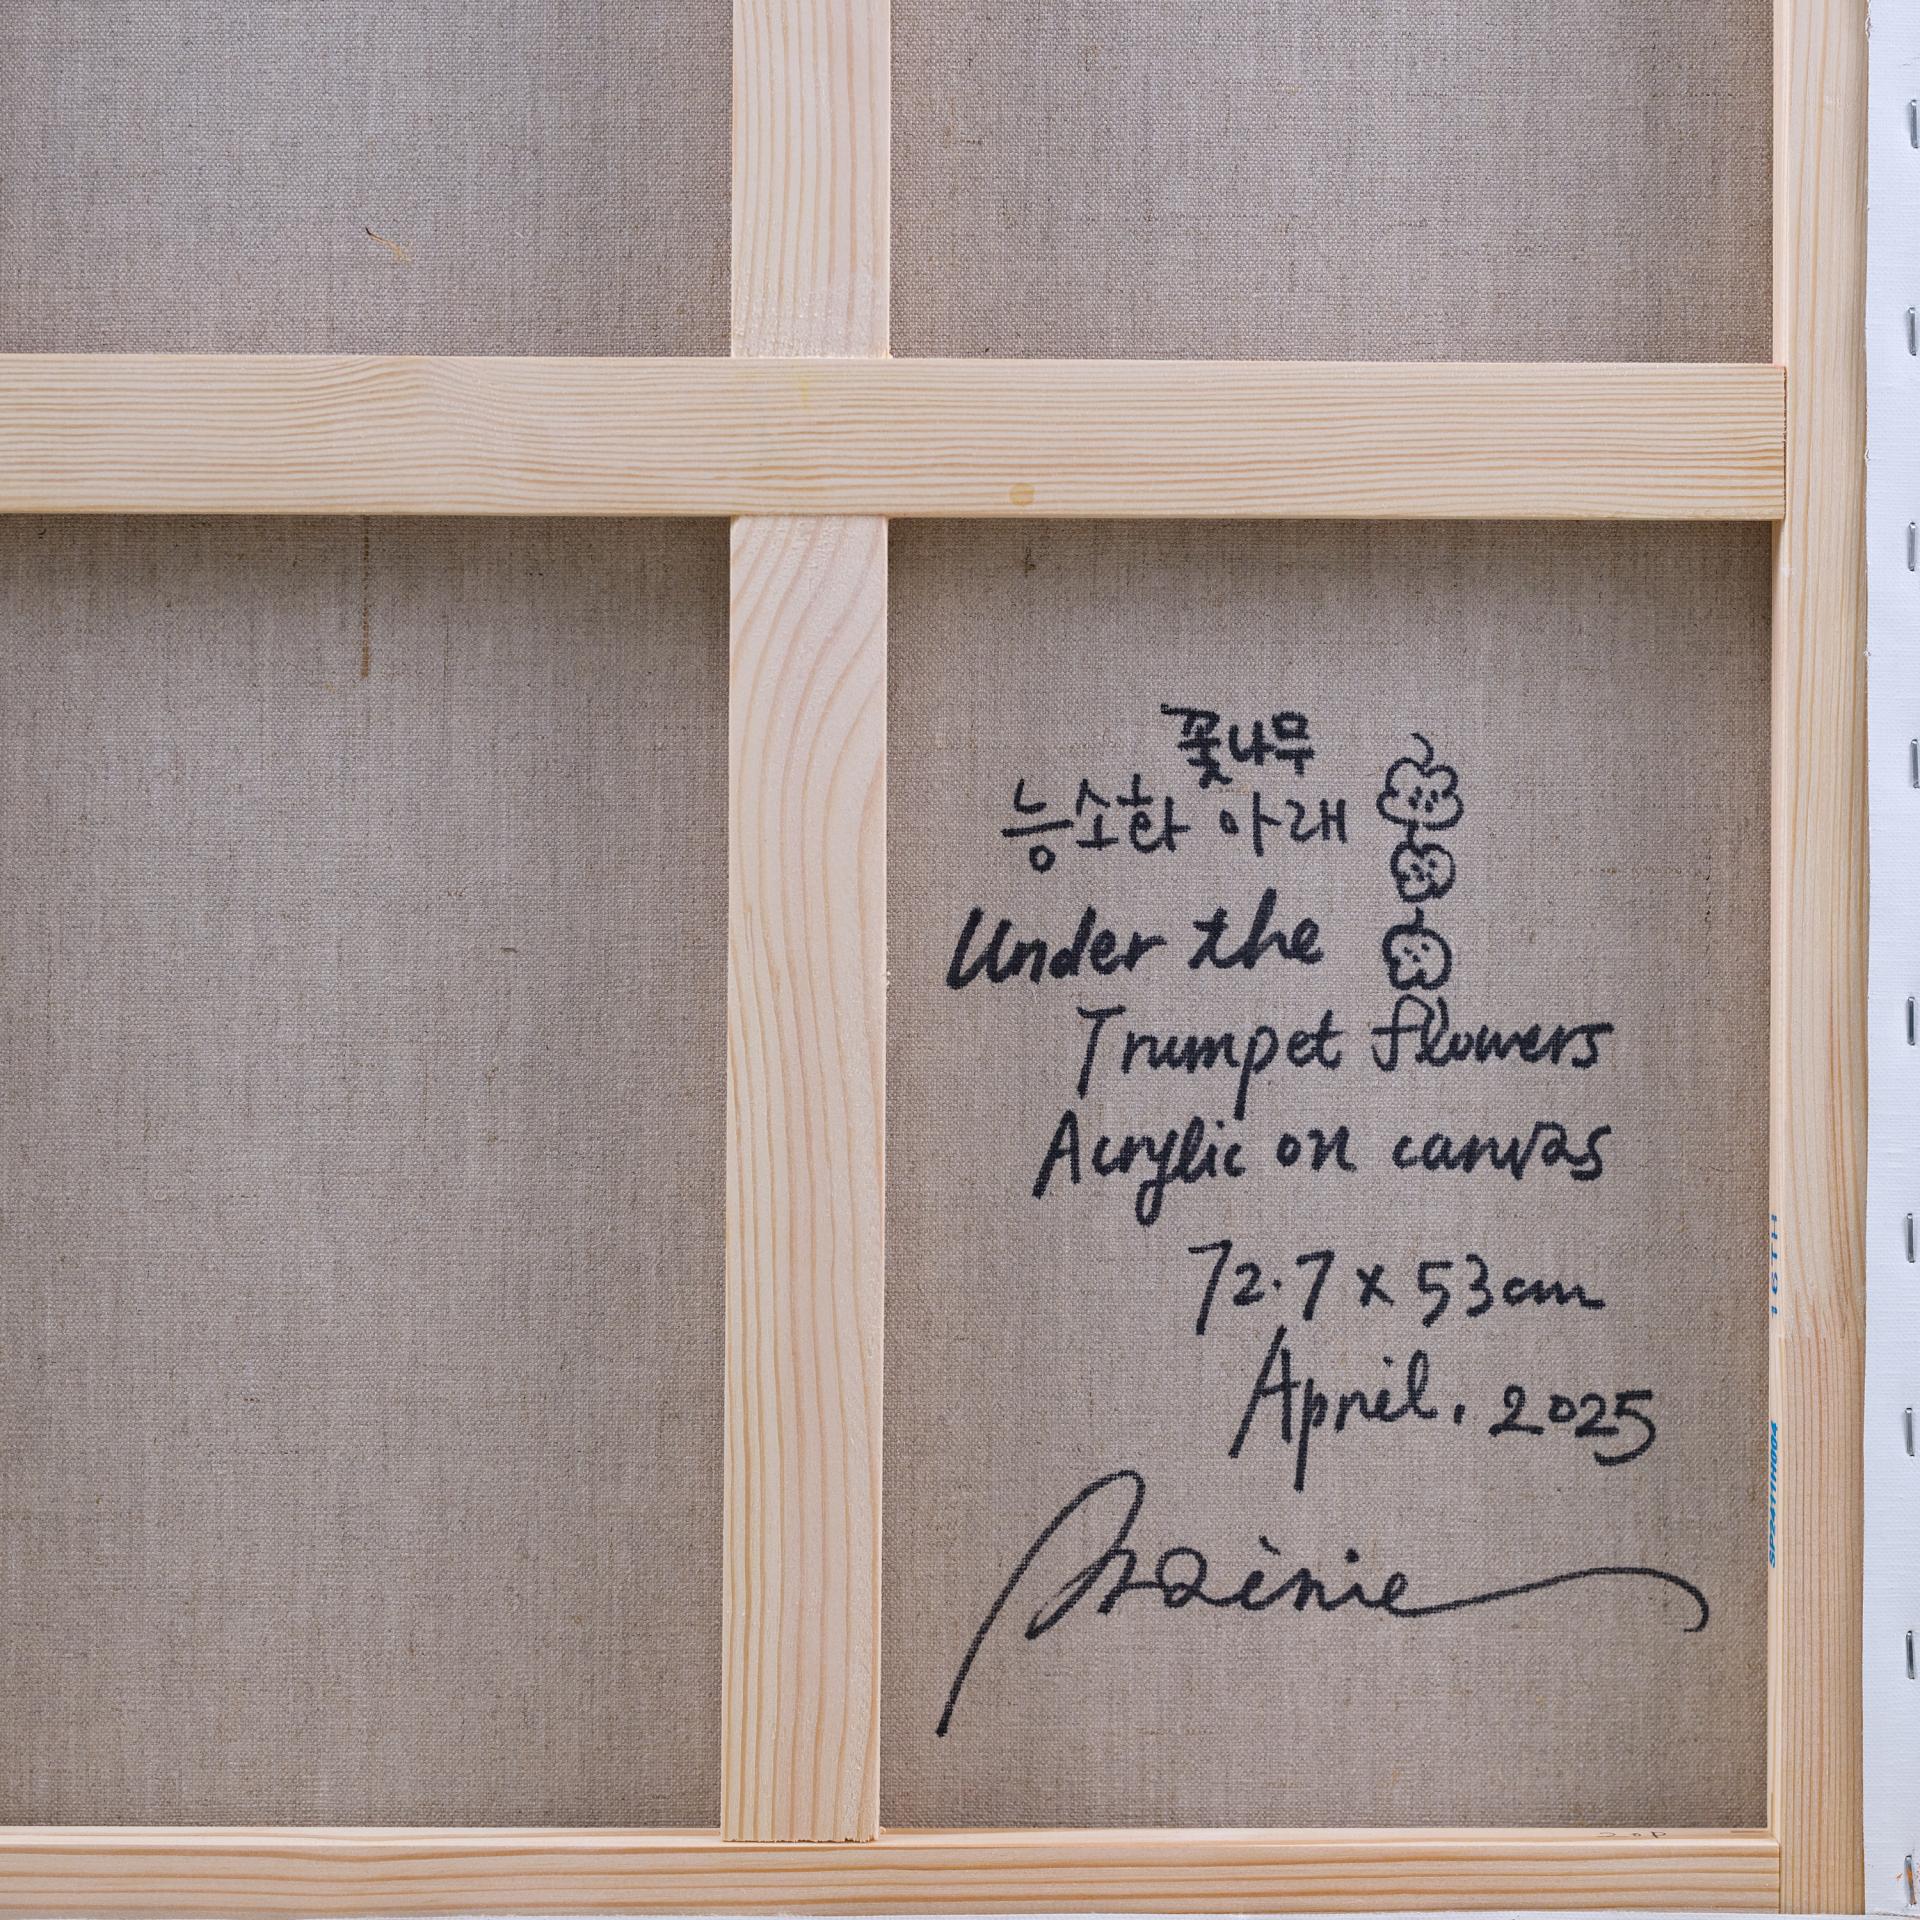 꽃나무
능소화 아래
Under the
Trumpet flowers
Acrylic on canvas
72.7 x 53cm
April. 2025
SP2411H004